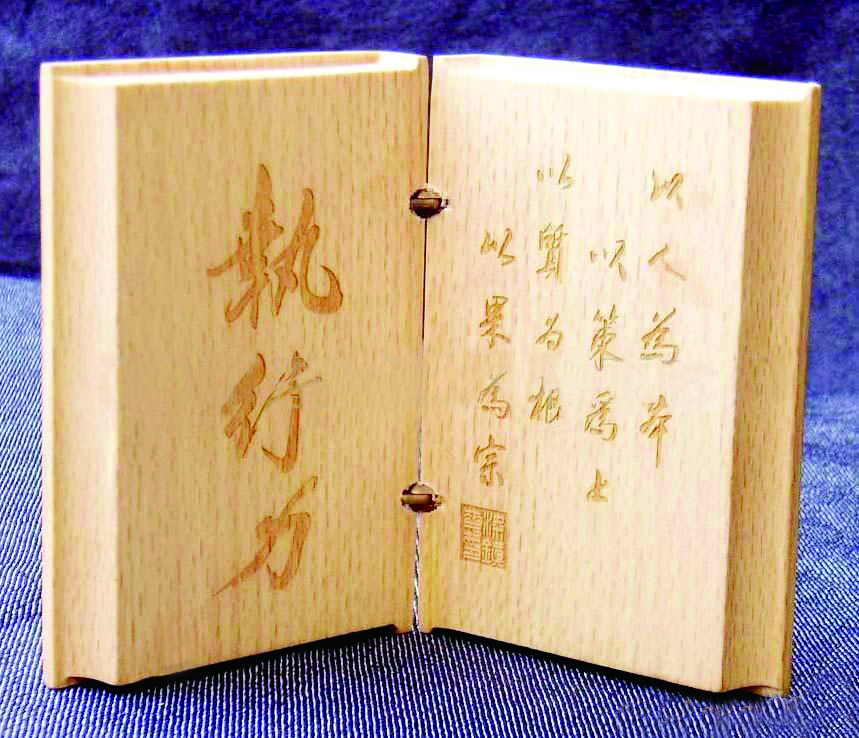 以人為本
以策為上
以質為根
以果為宗
執行力